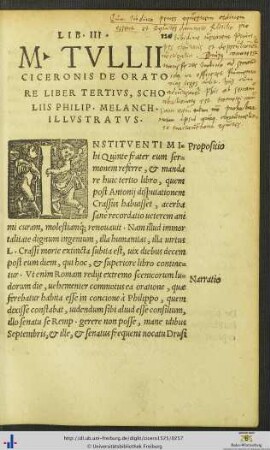 LIB. III.
M. TVLLII
CICERONIS DE ORATO
RE LIBER TERTIVS, SCHO
LIIS PHILIP. MELANCH.
ILLVSTRATVS.
INSTITVENTI MI
hi Quinte frater eum ser
monem referre, & manda
re huic tertio libro, quem
post Antonij disputationem
Crassus habuisset, acerba
sane recordatio ueterem ani
mi curam, molestiamq; renouauit. Nam illud immor
talitate dignum ingenium, illa humanitas, illa uirtus
L. Crassi morte extincta subita est, uix diebus decem
post eum diem, qui hoc, & superiore libro contine
tur. Vt enim Romam redijt extremo scenicorum lu
dorum die, uehementer commotus ea oratione, quæ
ferebatur habita esse in concione à Philippo, quem
dixisse constabat, uidendum sibi aliud esse consilium,
illo senatu se Remp. gerere non posse, mane idibus
Septembris, & ille, & senatus frequens uocatu Drusi
Propositio
Narratio
http://dl.ub.uni-freiburg.de/diglit/cicero1525/0257
© Universitätsbibliothek Freiburg